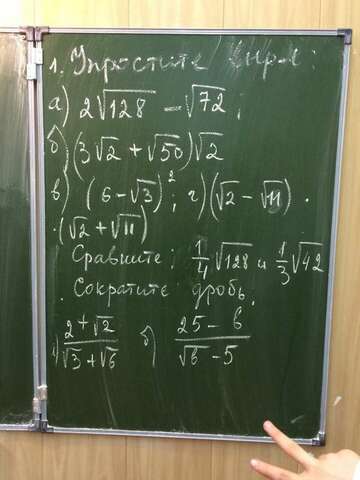 1. Упростите выр.:
а) 2√128 − √72;
б) (3√2 + √50)√2
в) (6 − √3)²; г) (√2 − √11) ·
· (√2 + √11)
Сравните: 1/4 √128 и 1/3 √42
. Сократите дробь.
(2 + √2)/(√3 + √6) б) (25 − b)/(√b − 5)